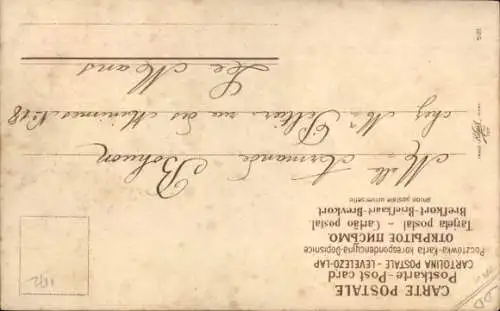 CARTE POSTALE
Postkarte - Post card
CARTOLINA POSTALE - LEVELEZO-LAP
Pocztówka-Karta korespondencyjna-Dopisnice
ОТКРЫТОЕ ПИСЬМО.
Tarjeta postal - Cartão postal.
Brefkort-Briefkaart-Brevkort
union postale universelle
Melle Armande Bohuon
chez Mr Peltier rue des Minimes No 18
Le Mans